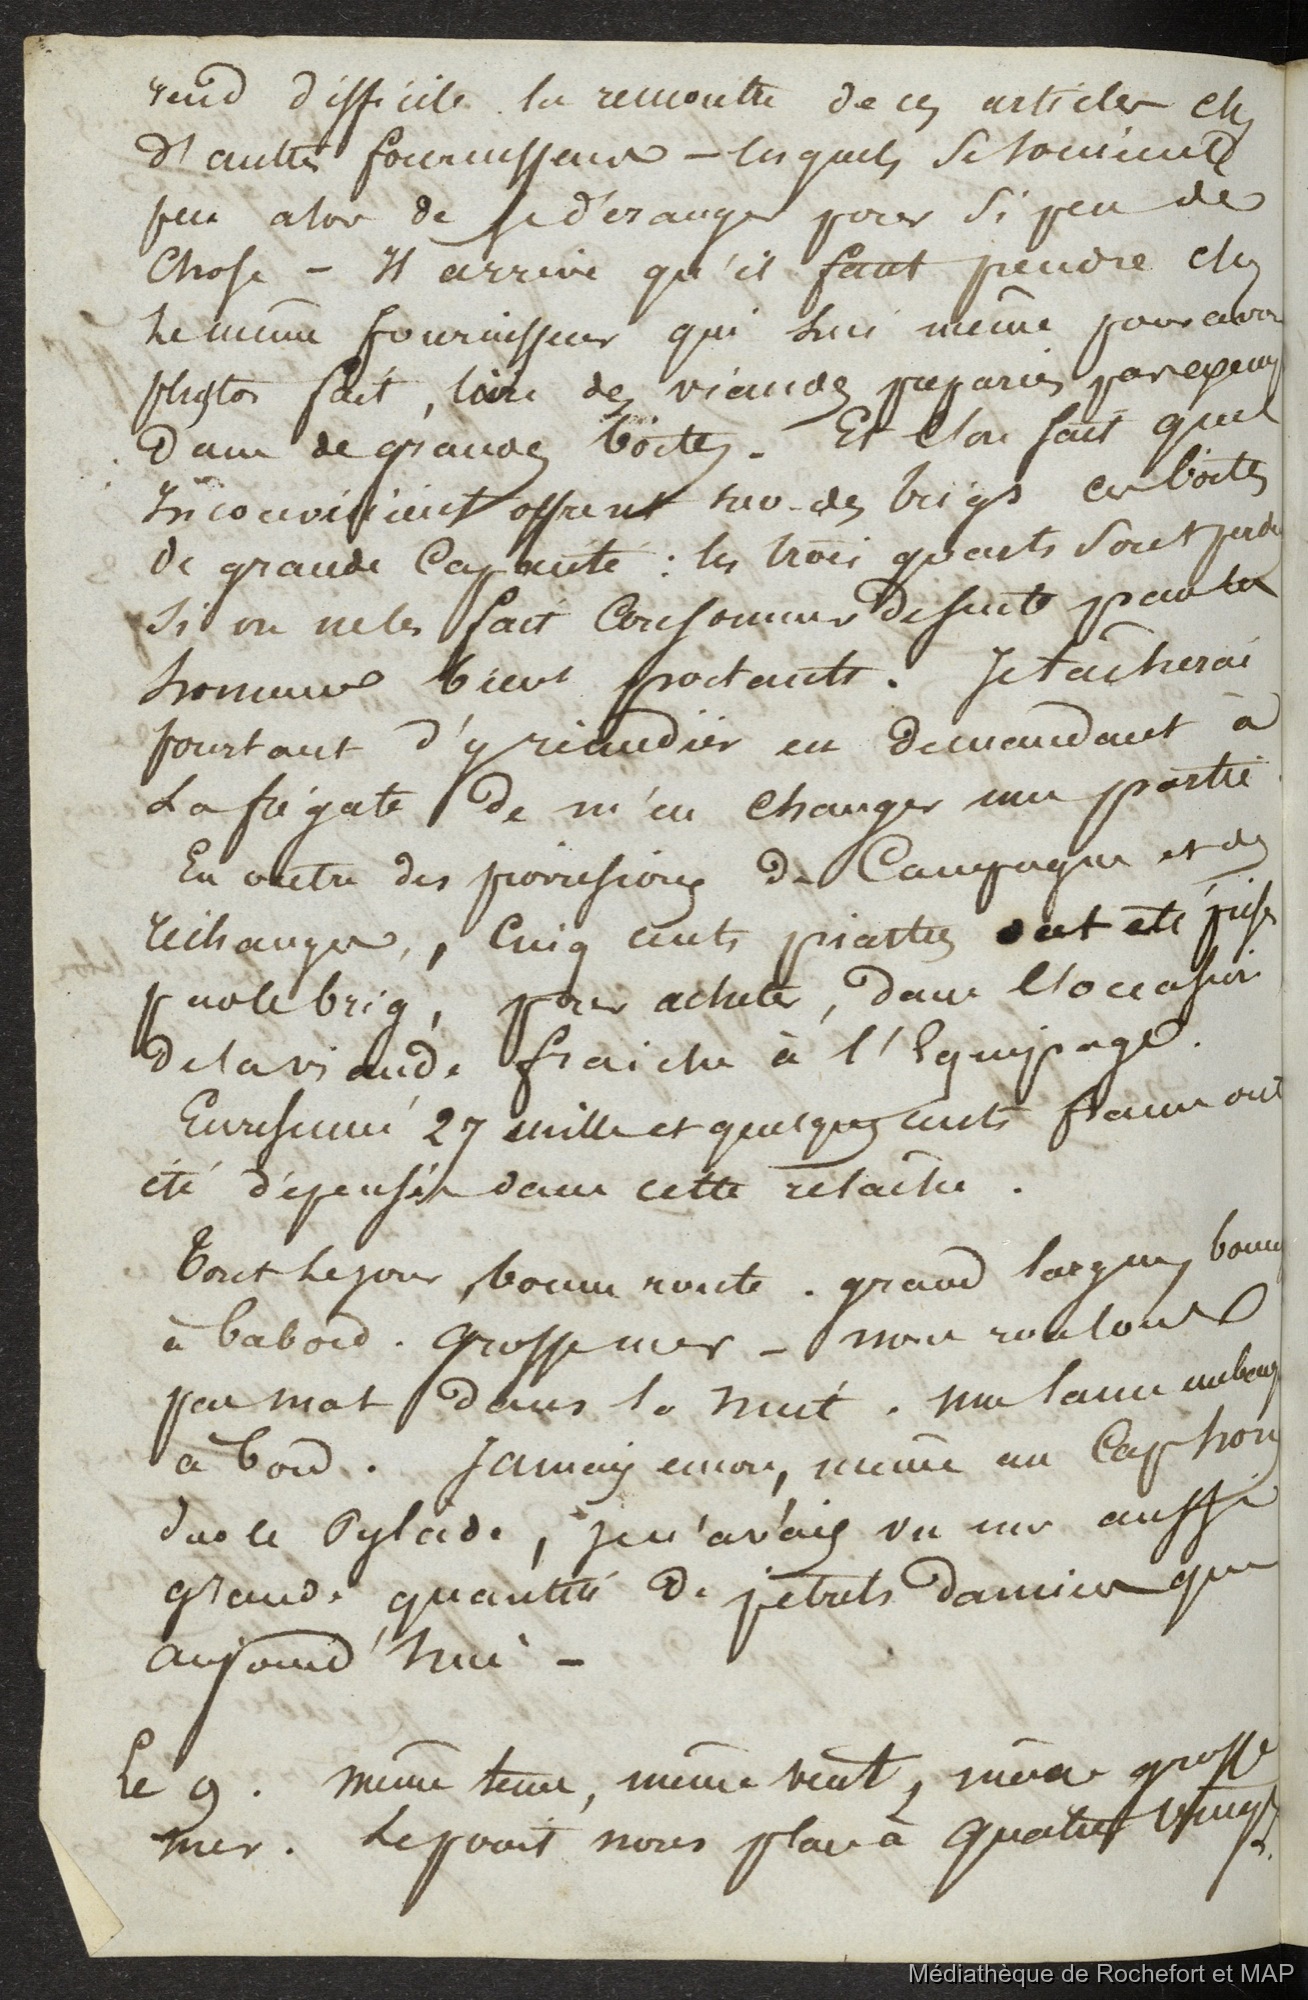 rend difficile la remonte de ces articles chez
d'autres fournisseurs – lesquels se soucient
peu alors de se déranger pour si peu de
chose – Il arrive qu'il faut prendre chez
le même fournisseur qui lui même pour avoir
plustôt fait, livre des viandes préparées par exemple
dans de grandes boites. Et l'on sait quel
inconvénient offrent sur des brigs ces boites
de grande capacité : les trois quarts sont perdus
si on ne les fait consommer de suite par les
hommes bien portants. Je tâcherai
pourtant d'y rémédier en demandant à
la frégate de m'en changer une partie.
En outre des provisions de campagne et des
réchanges, cinq cents piastres ont été prises
par le brig, pour acheter, dans l'occasion
de la viande fraiche à l'équipage.
En résumé 27 mille et quelques cents francs ont
été dépensés dans cette relâche.
Tout le jour, bonne route. grand largue, bonnettes
à babord. grosse mer – nous roulons
pas mal dans la nuit. une lame embarque
à bord. Jamais encore, même au Cap horn
sur le Pylade, je n'avais vu une aussi
grande quantité de pétrels damiers que
aujourd'hui –
Le 9. même tems, même vent, même grosse
mer. Le point nous place à quatre vingt
Médiathèque de Rochefort et MAP